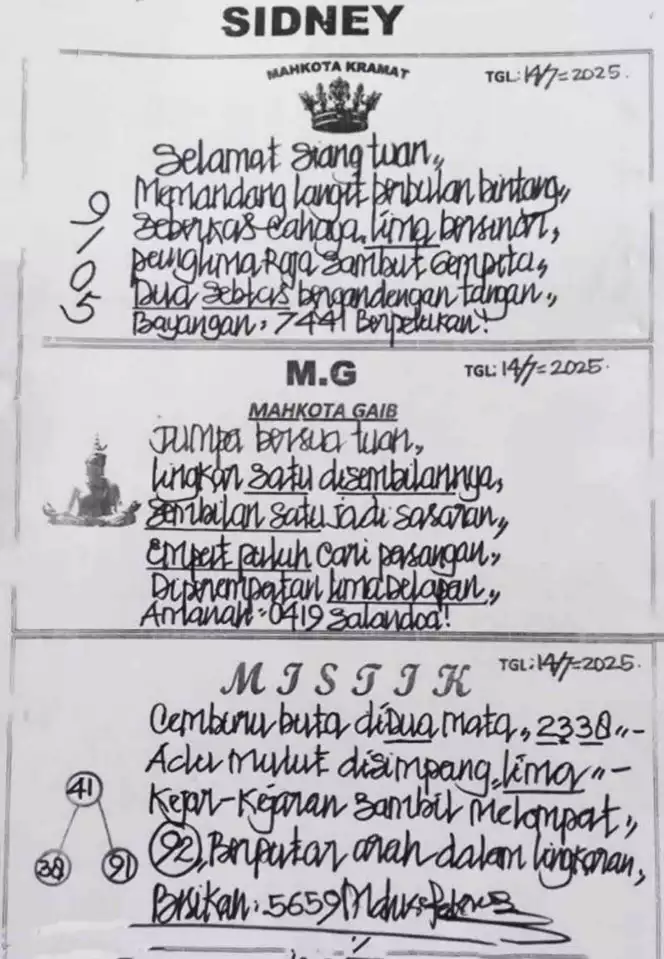 SIDNEY
MAHKOTA KRAMAT
TGL: 14/7=2025.
Selamat siang tuan,,
Memandang langit berbulan bintang,,
Seberkas Cahaya, lima bersinar,
Raja Sambut Gempita,
Dua Sebelas bergandengan tangan,,
Bayangan: 7441 Berpelukan!
9/05
M.G
TGL: 14/7=2025.
MAHKOTA GAIB
Jumpa bersua tuan,
lingkar satu disembilannya,
Sembilan satu jadi sasaran,,
Empat puluh Cari pasangan,,
Diperempatan lima Delapan,,
Amanah=0419 Salandoa!
MISTIK
TGL: 14/7=2025.
Cemburu buta didua mata,, 2338,,-
Adu Mulut disimpang, lima,,-
Kejar-Kejaran Sambil Melompat,,
92, Berputar arah dalam lingkaran,
Bisikan: 5659
41
38 91